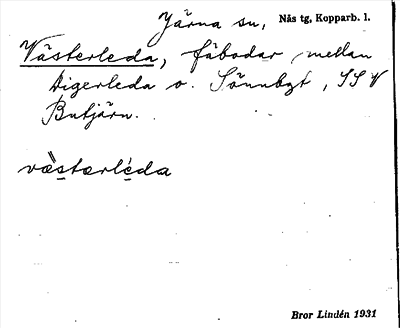 Järna sn, Nås tg, Kopparb. l.
Västerleda, fäbodar mellan
Digerleda o. Sönnbgt, SSV
Butjärn.
væ̀starlé̱da
Bror Lindén 1931